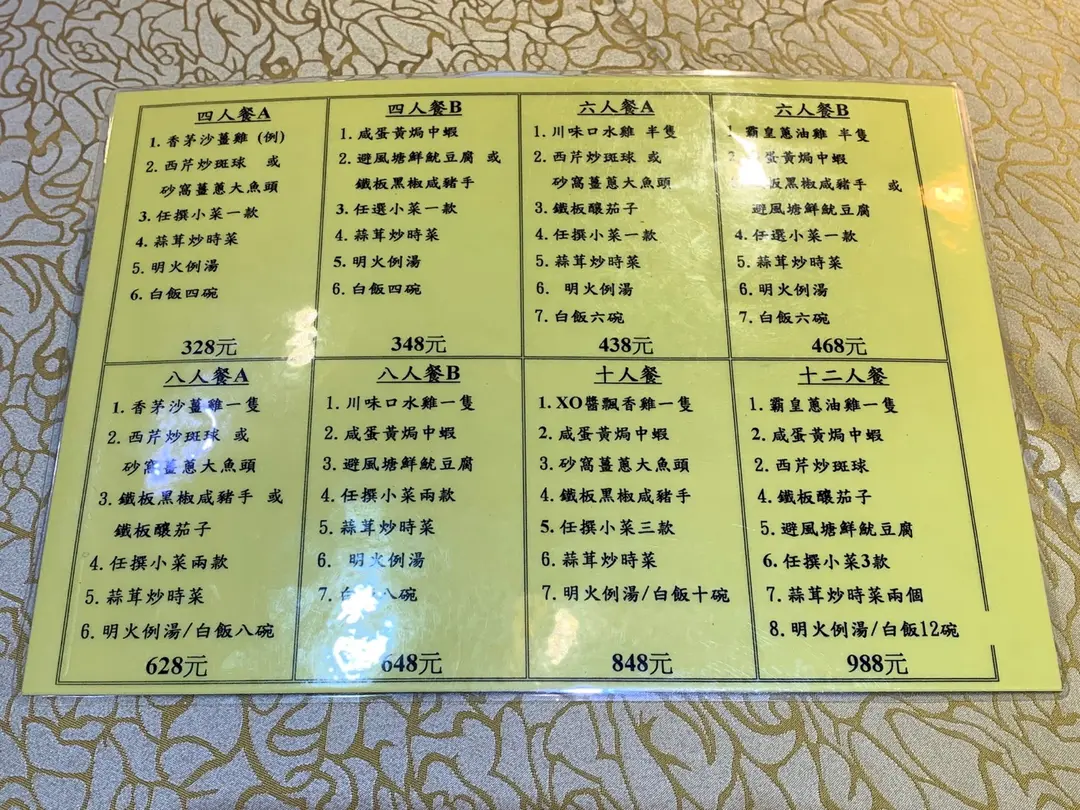 四人餐A
1. 香茅沙薑雞 (例)
2. 西芹炒斑球 或
砂窩薑蔥大魚頭
3. 任撰小菜一款
4. 蒜茸炒時菜
5. 明火例湯
6. 白飯四碗
328元
四人餐B
1. 咸蛋黃焗中蝦
2. 避風塘鮮魷豆腐 或
鐵板黑椒咸豬手
3. 任選小菜一款
4. 蒜茸炒時菜
5. 明火例湯
6. 白飯四碗
348元
六人餐A
1. 川味口水雞 半隻
2. 西芹炒斑球 或
砂窩薑蔥大魚頭
3. 鐵板釀茄子
4. 任撰小菜一款
5. 蒜茸炒時菜
6. 明火例湯
7. 白飯六碗
438元
六人餐B
1. 霸皇蔥油雞 半隻
蛋黃焗中蝦
板黑椒咸豬手 或
避風塘鮮魷豆腐
4. 任選小菜一款
5. 蒜茸炒時菜
6. 明火例湯
7. 白飯六碗
468元
八人餐A
1. 香茅沙薑雞一隻
2. 西芹炒斑球 或
砂窩薑蔥大魚頭
3. 鐵板黑椒咸豬手 或
鐵板釀茄子
4. 任撰小菜兩款
5. 蒜茸炒時菜
6. 明火例湯/白飯八碗
628元
八人餐B
1. 川味口水雞一隻
2. 咸蛋黃焗中蝦
3. 避風塘鮮魷豆腐
4. 任撰小菜兩款
5. 蒜茸炒時菜
6. 明火例湯
7. 白飯八碗
648元
十人餐
1. XO醬飄香雞一隻
2. 咸蛋黃焗中蝦
3. 砂窩薑蔥大魚頭
4. 鐵板黑椒咸豬手
5. 任撰小菜三款
6. 蒜茸炒時菜
7. 明火例湯/白飯十碗
848元
十二人餐
1. 霸皇蔥油雞一隻
2. 咸蛋黃焗中蝦
2. 西芹炒斑球
4. 鐵板釀茄子
5. 避風塘鮮魷豆腐
6. 任撰小菜3款
7. 蒜茸炒時菜兩個
8. 明火例湯/白飯12碗
988元